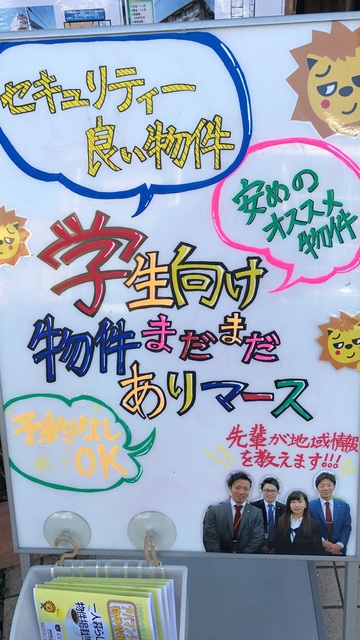 セキュリティー
良い物件
安めの
オススメ
物件
学生向け
物件まだまだ
ありマース
予約なし
OK
先輩が地域情報
を教えます!!!
一人暮らし
物件相談